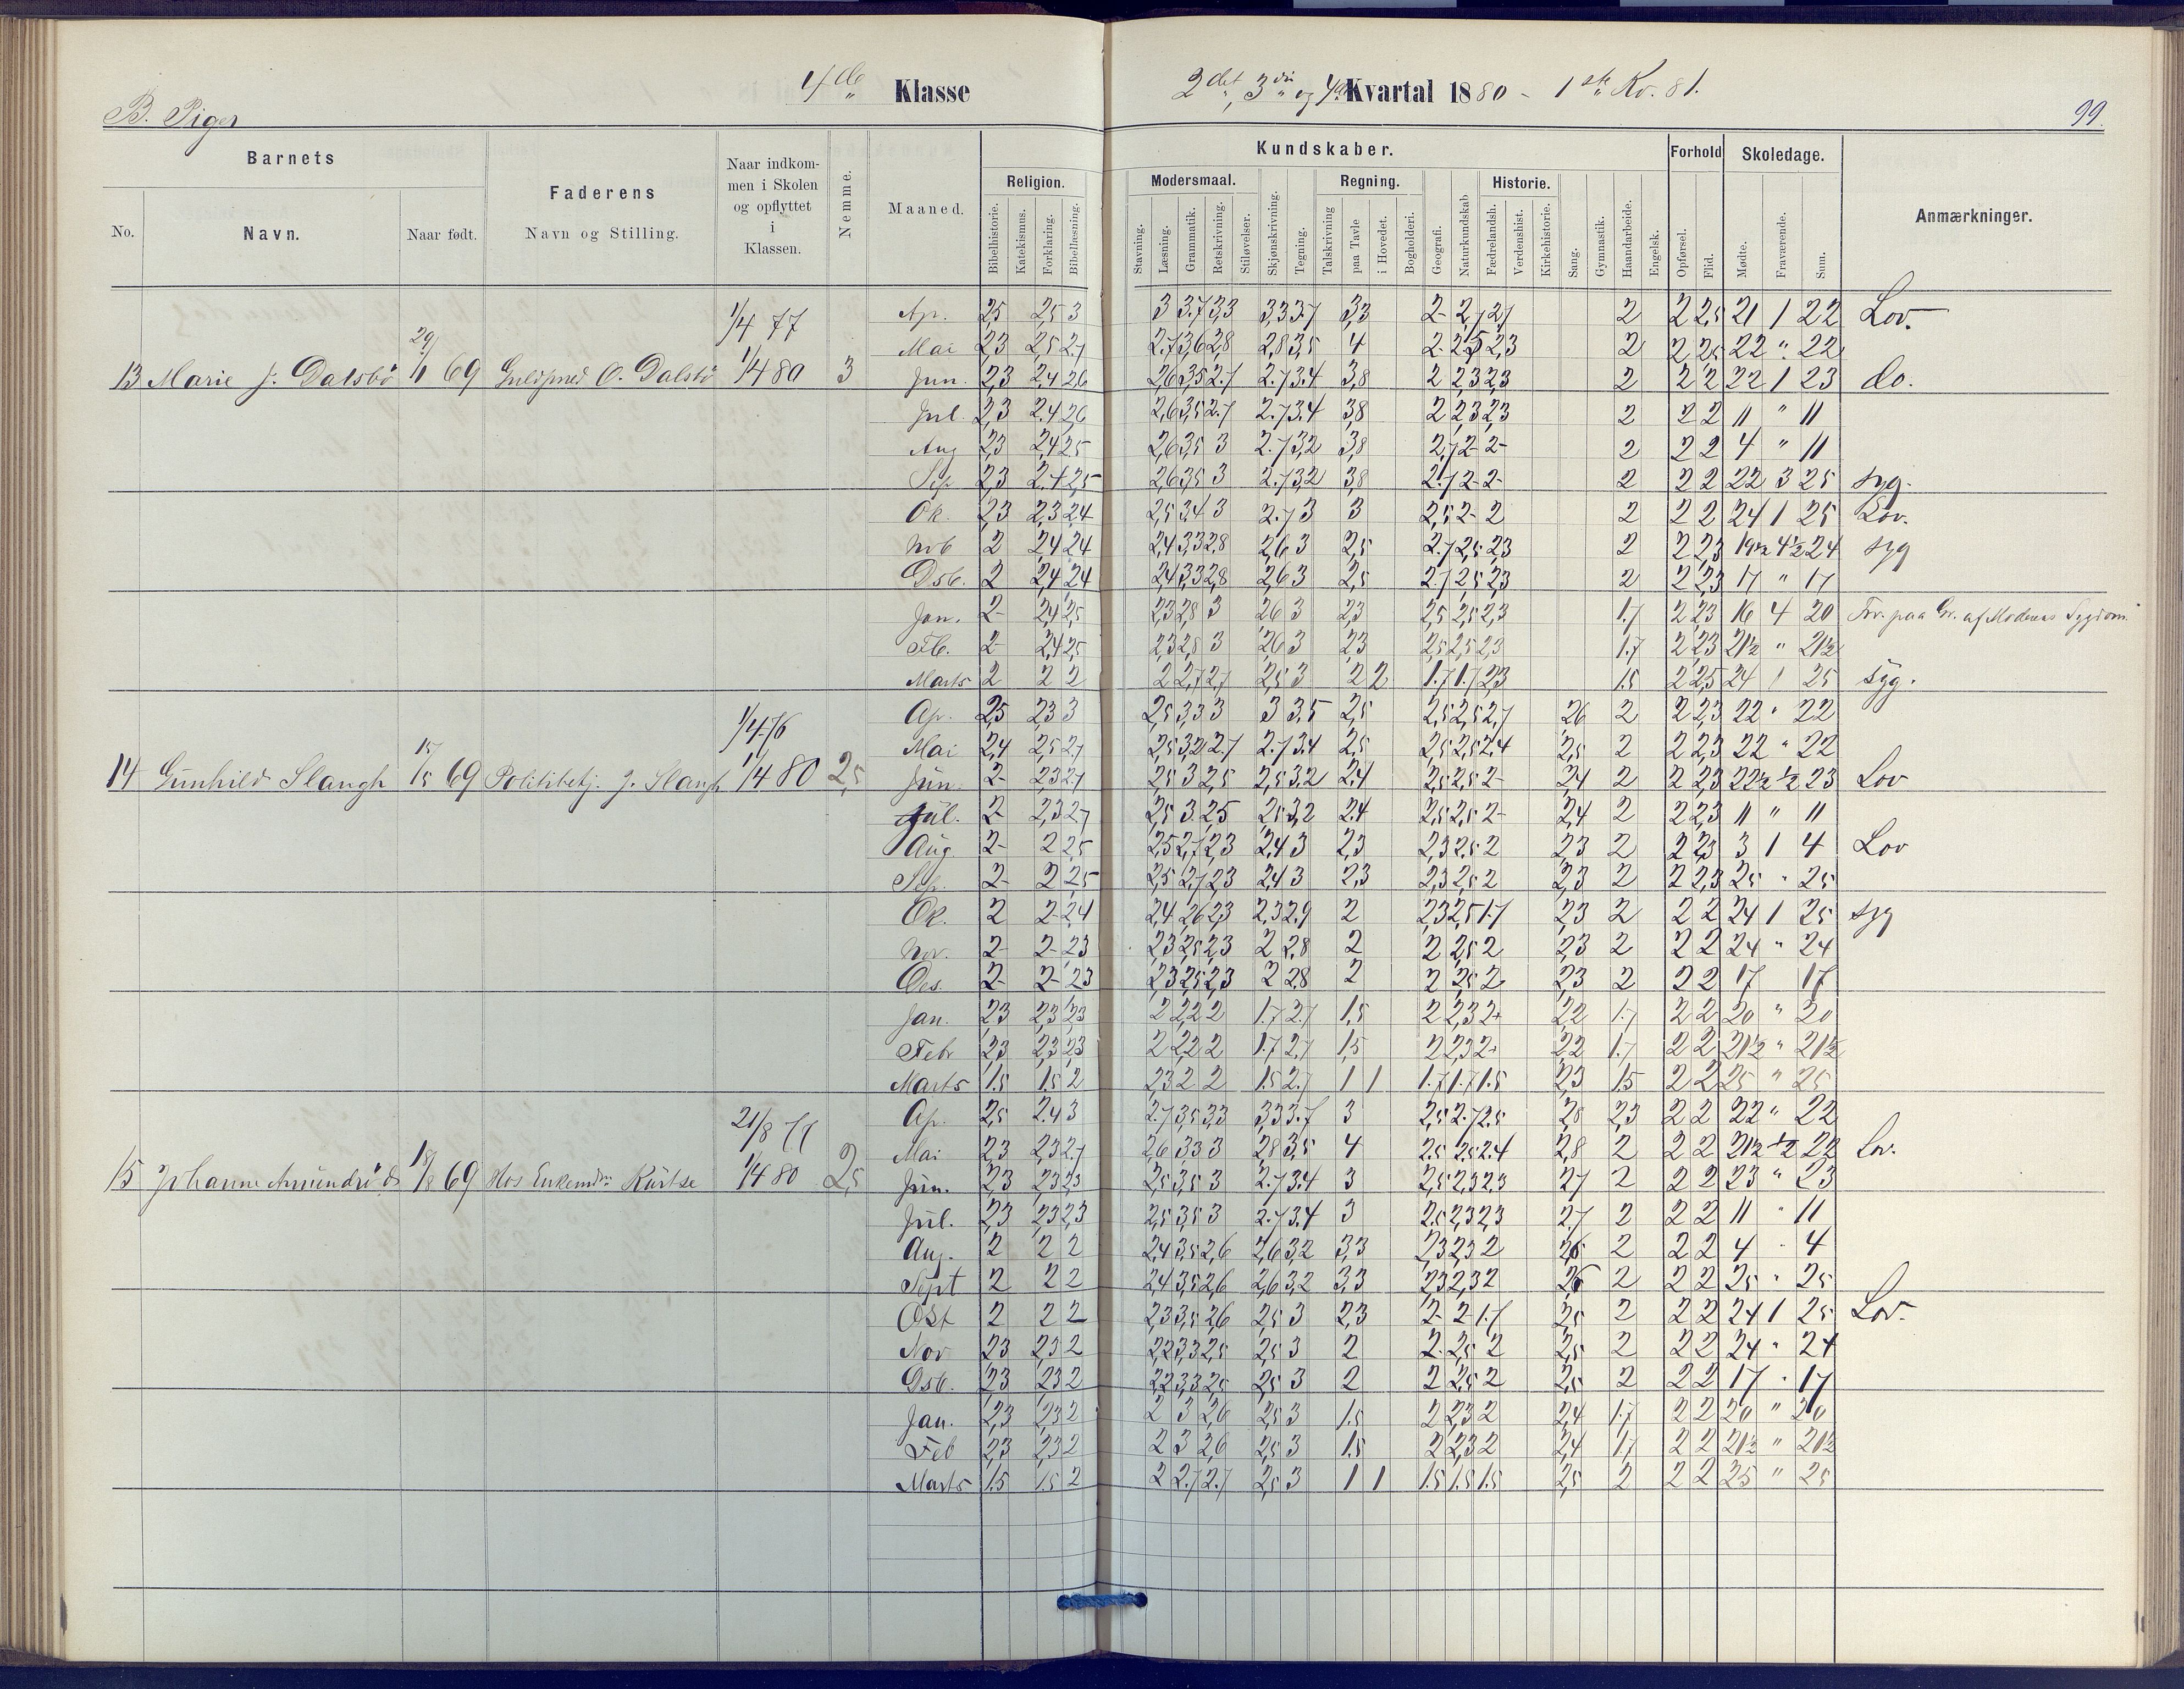 B. Piger
4de Klasse
2det, 3die og 4de Kvartal 1880 - 1ste Kv. 81.
99.
Barnets
No.
Navn.
Naar født.
Faderens
Navn og Stilling.
Naar indkom-
men i Skolen
og opflyttet
i
Klassen.
Nemme.
Maaned.
Kundskaber.
Religion.
Bibelhistorie.
Katekismus.
Forklaring.
Bibellæsning.
Modersmaal.
Stavning.
Læsning.
Grammatik.
Retskrivning.
Stiløvelser.
Skjønskrivning.
Tegning.
Regning.
Talskrivning
paa Tavle
i Hovedet.
Bogholderi.
Geografi.
Naturkundskab
Historie.
Fædrelandsh.
Verdenshist.
Kirkehistorie.
Sang.
Gymnastik.
Haandarbeide.
Engelsk.
Forhold
Opførsel.
Flid.
Skoledage.
Mødte.
Fraværende.
Sum.
Anmærkninger.
13 Marie J. Dalsbö 29/1 69 O. Dalsbö 1/4 77 1/4 80 3
Ap. 2,5 2,5 3 3 3.7 3,3 3,3 3.7 3,3 2- 2,7 2,7 2 2 2,5 21 1 22 Lov.
Mai 2,3 2,5 2.7 2.7 3,6 2,8 2,8 3,5 4 2- 2,5 2,3 2 2 2,5 22 " 22
Jun. 2,3 2,4 2,6 2,6 3,5 2.7 2.7 3.4 3,8 2 2,3 2,3 2 2 2 22 1 23 do.
Jul. 2,3 2.4 2,6 2,6 3,5 2.7 2.7 3.4 3,8 2 2,3 2,3 2 2 2 11 " 11
Aug 2,3 2,4 2,5 2,6 3,5 3 2.7 3,2 3,8 2,7 2- 2- 2 2 2 4 " 11
Sep 2,3 2.4 2,5 2,6 3,5 3 2.7 3,2 3,8 2.7 2- 2- 2 2 2 22 3 25 syg.
Ok. 2,3 2,3 2,4 2,5 3,4 3 2.7 3 3 2,5 2- 2 2 2 2 24 1 25 Lov.
Nvb 2 2,4 2,4 2,4 3,3 2,8 2,6 3 2,5 2.7 2,5 2,3 2 2 2,3 19½ 4½ 24 syg
Dsb. 2 2,4 2,4 2,4 3,3 2,8 2,6 3 2,5 2.7 2,5 2,3 2 2 2,3 17 " 17
Jan. 2- 2,4 2,5 2,3 2,8 3 2,6 3 2,3 2,5 2,5 2,3 1.7 2 2,3 16 4 20 Frv. paa Gr. af Moderens Sygdom
Fb. 2- 2,4 2,5 2,3 2,8 3 2,6 3 2,3 2,5 2,5 2,3 1.7 2 2,3 21½ " 21½
Marts 2 2 2 2 2,7 2,7 2,5 3 2 2 1.7 1.7 2,3 1.5 2 2,5 24 1 25 syg.
14 Gunhild Slangh 15/5 69 Politibetj. J. Slangh 1/4 76 1/4 80 2,5
Ap. 2,5 2,3 3 2,5 3,3 3 3 3,5 2,5 2,5 2,5 2,7 2,6 2 2 2,3 22 " 22
Mai 2,4 2,5 2,7 2,5 3,2 2.7 2.7 3.4 2,5 2,5 2,5 2.4 2,5 2 2 2,3 22 " 22
Jun. 2- 2,3 2,7 2,5 3 2,5 2,5 3,2 2.4 2,5 2,5 2- 2,4 2 2 2,3 22½ ½ 23 Lov
Jul. 2- 2,3 2,7 2,5 3 2,5 2,5 3,2 2.4 2,5 2,5 2- 2,4 2 2 2,3 11 " 11
Aug. 2- 2 2,5 2,5 2,7 2,3 2,4 3 2,3 2,3 2,5 2 2,3 2 2 2,3 3 1 4 Lov
Sep. 2- 2 2,5 2,5 2,7 2,3 2,4 3 2,3 2,3 2,5 2 2,3 2 2 2,3 25 " 25
Ok. 2 2- 2,4 2,4 2,6 2,3 2,3 2,9 2 2,3 2,5 1.7 2,3 2 2 2 24 1 25 syg
Nov. 2- 2- 2,3 2,3 2,5 2,3 2 2,8 2 2 2,5 2 2,3 2 2 2 24 " 24
Des. 2- 2- 2,3 2,3 2,5 2,3 2 2,8 2 2 2,5 2 2,3 2 2 2 17 17
Jan. 2,3 2,3 2,3 2 2,2 2 1.7 2.7 1,5 2 2,3 2+ 2,2 1.7 2 2 20 " 20
Febr 2,3 2,3 2,3 2 2,2 2 1.7 2,7 1,5 2 2,3 2+ 2,2 1.7 2 2 21½ " 21½
Marts 1.5 1.5 2 2,3 2 2 1.5 2.7 1 1 1.7 1.7 1.5 2,3 1.5 2 2 25 " 25
15 Johanne Amundsöd 18/8 69 Hos Enkemdm. Kurtze 21/8 77 1/4 80 2,5
Ap. 2,5 2.4 3 2.7 3,5 3,3 3,3 3.7 3 2,5 2.7 2,5 2,8 2,3 2 2 22 " 22
Mai 2,3 2,3 2.7 2,6 3,3 3 2,8 3,5 4 2,5 2,5 2.4 2,8 2 2 2 21½ ½ 22 Lov.
Jun. 2,3 2,3 2,3 2,5 3,5 3 2.7 3.4 3 2,5 2,3 2,3 2,7 2 2 2 23 " 23
Jul. 2,3 2,3 2,3 2,5 3,5 3 2.7 3.4 3 2,5 2,3 2,3 2,7 2 2 2 11 " 11
Aug. 2 2 2 2,4 3,5 2,6 2,6 3,2 3,3 2,3 2,3 2 2,6 2 2 2 4 " 4
Sept 2 2 2 2,4 3,5 2,6 2,6 3,2 3,3 2,3 2,3 2 2,6 2 2 2 25 " 25
Okt 2 2 2 2,3 3,5 2,6 2,5 3 2,3 2- 2 1.7 2,5 2 2 2 24 1 25 Lov.
Nov 2,3 2,3 2 2,2 3,3 2,5 2,5 3 2 2- 2,5 2 2,5 2 2 2 24 " 24
Dsb. 2,3 2,3 2 2,2 3,3 2,5 2,5 3 2 2 2,5 2 2,5 2 2 2 17 " 17
Jan. 2,3 2,3 2 2 3 2,6 2,5 3 1.5 2 2,3 2 2,4 1.7 2 2 20 " 20
Feb 2,3 2,3 2 2 3 2,6 2,5 3 1.5 2 2,3 2 2,4 1.7 2 2 21½ " 21½
Marts 1.5 1.5 2 2 2.7 2.7 2,5 3 1 1 1.5 1.5 1.5 2,5 2 2 2 25 " 25